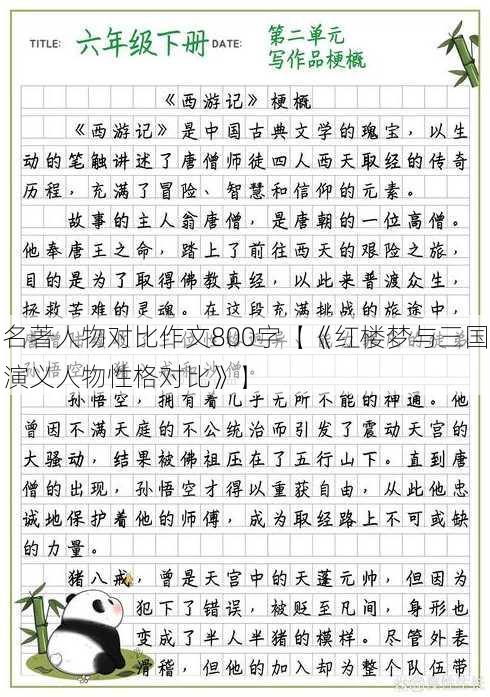 TITLE: 六年级下册 DATE: 第二单元
写作品梗概
《西游记》梗概
《西游记》是中国古典文学的瑰宝，以生
动的笔触讲述了唐僧师徒四人西天取经的传奇
历程，充满了冒险、智慧和信仰的元素。
故事的主人翁唐僧，是唐朝的一位高僧。
他奉唐王之命，踏上了前往西天的艰险之旅，
目的是为了取得佛教真经，以此来普渡众生，
拯救苦难的灵魂。在这段充满挑战的旅途中，
名著人物对比作文800字【《红楼梦与三国
演义人物性格对比》】
孙悟空，拥有着几乎无所不能的神通。他
曾因不满天庭的不公统治而引发了震动天宫的
大骚动，结果被佛祖压在了五行山下。直到唐
僧的出现，孙悟空才得以重获自由，从此他忠
诚地保护着他的师傅，成为取经路上不可或缺
的力量。
猪八戒，曾是天宫中的天蓬元帅，但因为
犯下了错误，被贬至凡间，身形也
变成了半人半猪的模样。尽管外表
滑稽，但他的加入却为整个队伍带